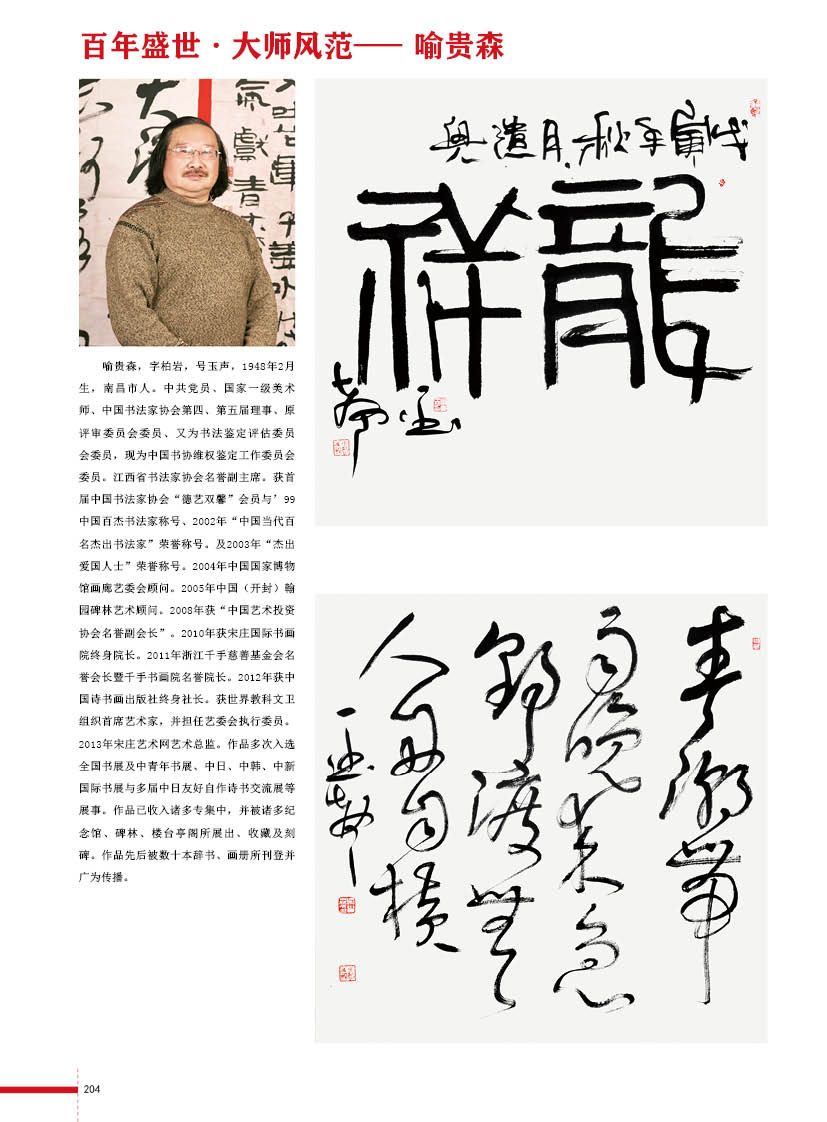 百年盛世·大师风范—— 喻贵森
喻贵森，字柏岩，号玉声，1948年2月
生，南昌市人。中共党员、国家一级美术
师、中国书法家协会第四、第五届理事、原
评审委员会委员、又为书法鉴定评估委员
会委员，现为中国书协维权鉴定工作委员会
委员。江西省书法家协会名誉副主席。获首
届中国书法家协会“德艺双馨”会员与’99
中国百杰书法家称号、2002年“中国当代百
名杰出书法家”荣誉称号。及2003年“杰出
爱国人士”荣誉称号。2004年中国国家博物
馆画廊艺委会顾问。2005年中国（开封）翰
园碑林艺术顾问。2008年获“中国艺术投资
协会名誉副会长”。2010年获宋庄国际书画
院终身院长。2011年浙江千手慈善基金会名
誉会长暨千手书画院名誉院长。2012年获中
国诗书画出版社终身社长。获世界教科文卫
组织首席艺术家，并担任艺委会执行委员。
2013年宋庄艺术网艺术总监。作品多次入选
全国书展及中青年书展、中日、中韩、中新
国际书展与多届中日友好自作诗书交流展等
展事。作品已收入诸多专集中，并被诸多纪
念馆、碑林、楼台亭阁所展出、收藏及刻
碑。作品先后被数十本辞书、画册所刊登并
广为传播。
戊寅年秋月遣兴
龍祥
春潮带
雨晚来急
野渡無
人舟自横
204